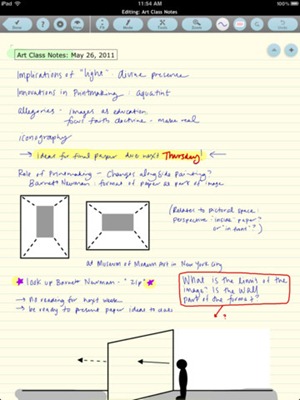 iPad
11:54 AM
100%
Editing: Art Class Notes
Art Class Notes: May 26, 2011
Implications of "light" - divine presence
Innovations in Printmaking - aquatint
allegories - images as education
faith doctrine - make real
iconography
→ Ideas for final paper due next Thursday!
Role of Printmaking - Changes alongside Painting?
Barnett Newman - format of paper as part of image
(Relates to pictorial space -
perspective - inside paper
or in front?)
at Museum of Modern Art in New York City
look up Barnett Newman - "Zip"
→ No reading for next week
→ be ready to present paper ideas to class
What is the limit of the
image? Is the wall
part of the format?
?